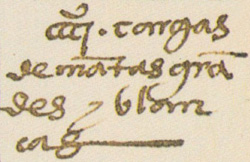 ccccj. cargas
de mãtas grã
des y blan
cas